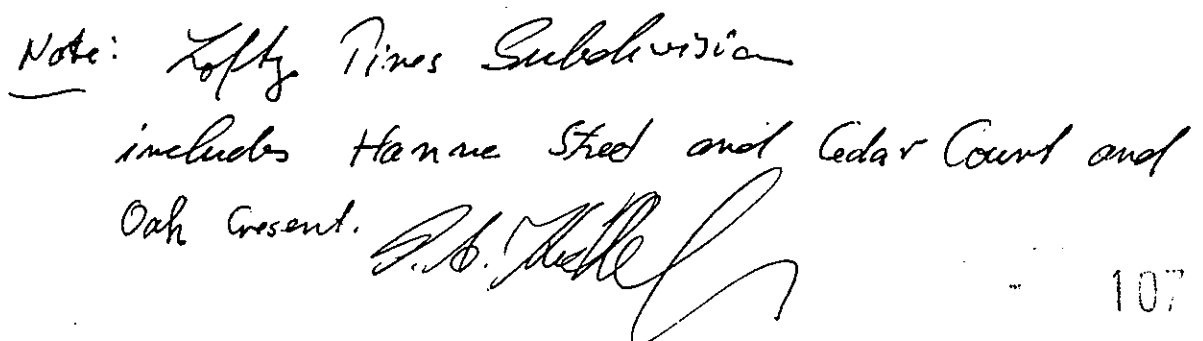 Note: Lofty Pines Subdivision
includes Hanne Street and Cedar Court and
Oak Cresent.
- 107